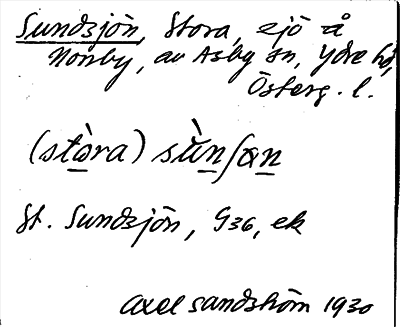 Sundsjön, Stora, sjö å
Norrby, av Asby sn, Ydre hd,
Österg. l.
(stòra) sùnʃɑn
St. Sundsjön, G36, ek
Axel Sandström 1930